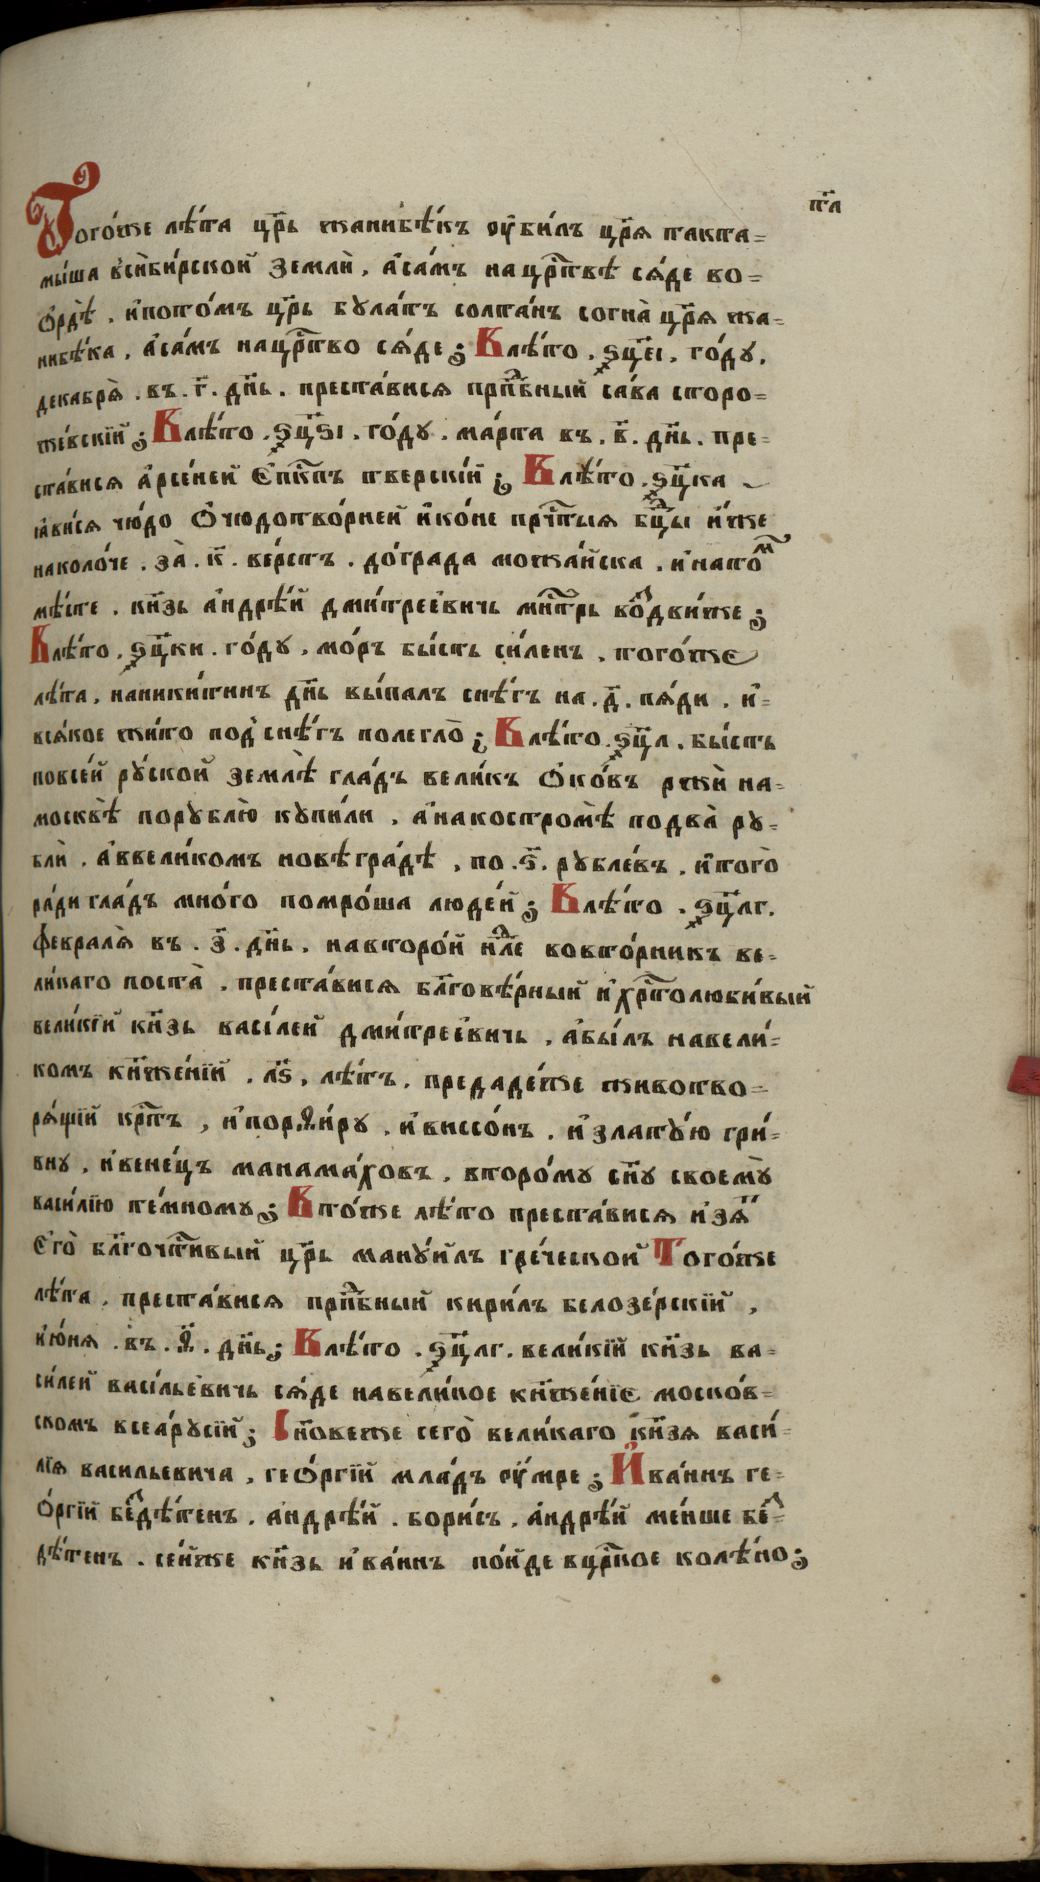 тл҃
Того́же лѣ́та цр҃ь жанибѣ́къ ᲂу҆би́лъ цр҃ѧ такта=
мы́ша всиби́рской земли̑, а҆са́мъ нацр҃твѣ сѧ́де во=
ѻ҆рдѣ̀, и҆пото́мъ цр҃ь була́тъ солта́нъ согна̀ цр҃ѧ жа=
нибѣ́ка, а҆са́мъ нацр҃тво сѧ́де; Влѣ́то ҂ѕц҃еі. го́ду,
декабрѧ̀ . въ . г҃ . дн҃ь . преста́висѧ прпⷣбный са́ва сторо=
же́вскїй; Влѣ́то ҂ѕц҃ѕі . го́ду . ма́рта въ . в҃ . дн҃ь . пре=
ста́висѧ а҆рсе́ней є҆пк҃пъ тверскі́й; Влѣ́то ҂ѕц҃ка
ꙗ҆ви́сѧ чю́до ѿчюдотво́рней и҆ко́не прчⷭ҇тыѧ бц҃ы и҆́же
наколо́че . за̀ . к҃ . ве́рстъ . до́града можа́йска . и҆натоⷨ
мѣ́сте . кн҃зь а҆ндрѣ́й дми́треевичь мн҃трь воⷥдви́же;
Влѣ́то ҂ѕц҃ки . го́ду, мо́ръ бы́сть си́ленъ, того́же
лѣ́та, наники́тинъ дн҃ь вы́палъ снѣ́гъ на . д҃ . пѧ́ди . и҆=
всѧ́кое жи́то под̾снѣ́гъ полегло̀; Влѣ́то ҂ѕц҃л . бы́сть
повсе́й ру́ской землѣ̀ гла́дъ вели́къ ѻ҆ко́въ ржѝ на=
москвѣ̀ порублю̀ купи́ли, а҆накостромѣ̀ подва̀ ру=
бли̑ . а҆ввели́комъ новѣгра́дѣ, по . ѕ҃ . рубле́въ . и҆того̀
ра́ди гла́дъ мно́го помро́ша люде́й; Влѣ́то ҂ѕц҃лг.
февралѧ̀ въ . з҃ . дн҃ь . навторо́й нⷣле вовто́рникъ ве=
ли́каго поста̀ . преста́висѧ бл҃говѣ́рный и҆хрⷭ҇толюби́вый
вели́кїй кн҃зь васі́лей дми́треевичь, а҆бы́лъ навели́=
комъ кн҃же́нїй . лѕ҃, лѣ́тъ, предаде́же живо́тво=
рѧ́щїй крⷭ҇тъ, и҆порѳи́ру, и҆виссо́нъ . и҆злату́ю гри́=
вну . и҆вене́цъ манама́ховъ, второ́му сн҃у своему̀
васи́лїю те́мному; Вто́же лѣ́то преста́висѧ и҆зѧ҃
є҆го̀ бл҃гочⷭ҇тивый цр҃ь мануи́лъ гре́ческой Того́же
лѣ́та, преста́висѧ прпⷣбный кири́лъ белозе́рскїй,
и҆ю́нѧ . въ . ѳ҃ . дн҃ь; Влѣ́то . ҂ѕц҃лг. вели́кїй кн҃зь ва=
си́лей васі́льевичь сѧ́де навели́кое кн҃же́нїе моско́в=
скомъ всеѧ́русїй; Сн҃овеже сего̀ вели́каго кн҃зѧ васи́=
лїѧ васильевича, геѻ́ргїй мла́дъ ᲂу҆́мре; И҆ва́ннъ ге=
ѻ́ргїй беⷥдѣ́тенъ . а҆ндрѣ́й . бори́съ . а҆ндрѣ́й ме́нше беⷥ=
дѣ́тенъ . се́йже кн҃зь и҆ва́ннъ по́йде вцрⷭ҇кое колѣ́но;